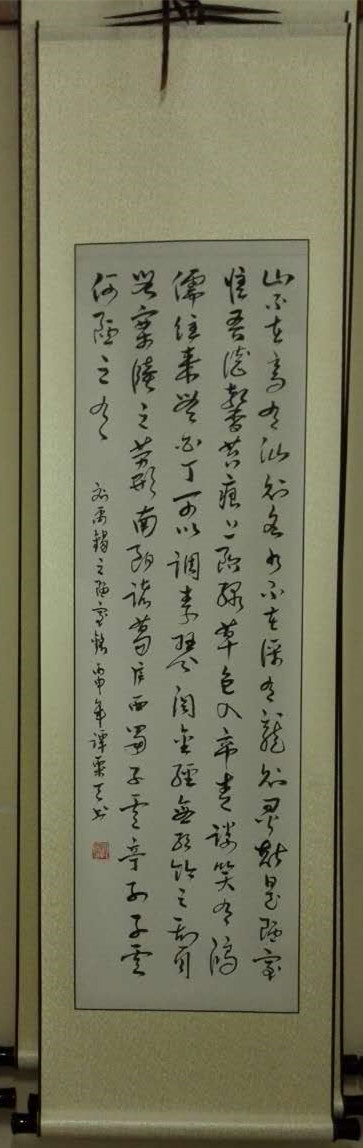 山不在高有仙则名水不在深有龍则灵斯是陋室
惟吾德馨苔痕上階绿草色入帘青谈笑有鸿
儒往来無白丁可以调素琴阅金经無丝竹之乱耳
無案牍之劳形南陽诸葛庐西蜀子雲亭孔子雲
何陋之有
刘禹锡之陋室铭 丙申年谭书